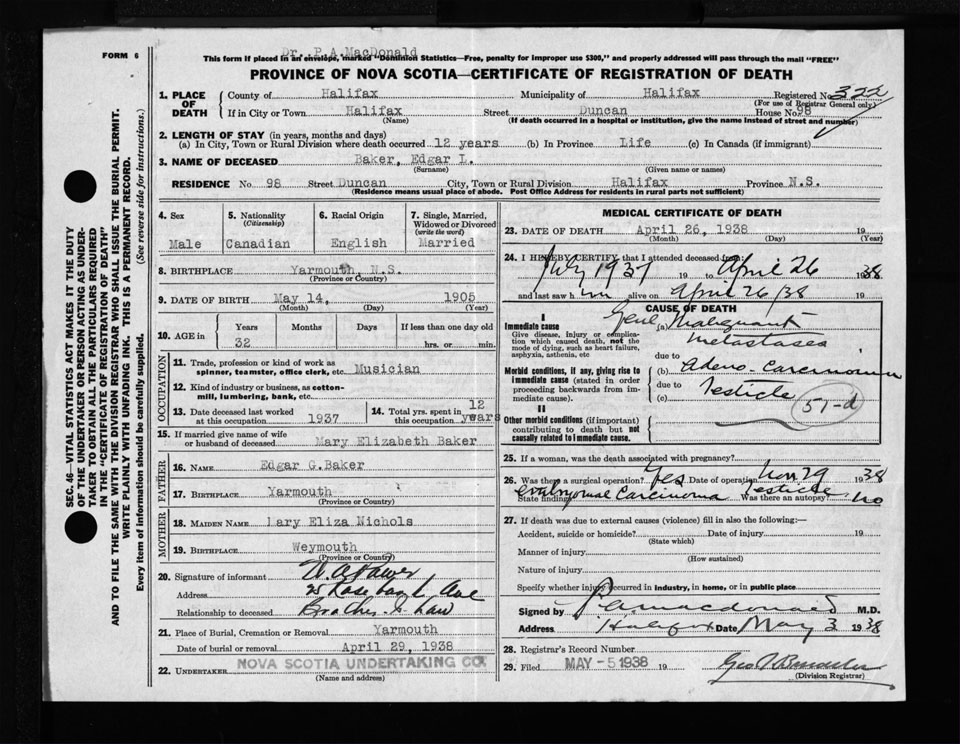 FORM 6
Dr. P.A.MacDonald
This form if placed in an envelope, marked "Dominion Statistics—Free, penalty for improper use $300," and properly addressed will pass through the mail "FREE"
PROVINCE OF NOVA SCOTIA—CERTIFICATE OF REGISTRATION OF DEATH
SEC. 46—VITAL STATISTICS ACT MAKES IT THE DUTY
OF THE UNDERTAKER OR PERSON ACTING AS UNDER-
TAKER TO OBTAIN ALL THE PARTICULARS REQUIRED
IN THE "CERTIFICATE OF REGISTRATION OF DEATH"
AND TO FILE THE SAME WITH THE DIVISION REGISTRAR WHO SHALL ISSUE THE BURIAL PERMIT.
WRITE PLAINLY WITH UNFADING INK. THIS IS A PERMANENT RECORD.
Every item of information should be carefully supplied. (See reverse side for instructions.)
1. PLACE OF DEATH County of Halifax Municipality of Halifax Registered No. 322
(For use of Registrar General only)
If in City or Town Halifax Street Duncan House No. 98
(Name) (If death occurred in a hospital or institution, give the name instead of street and number)
2. LENGTH OF STAY (in years, months and days)
(a) In City, Town or Rural Division where death occurred 12 years (b) In Province Life (c) In Canada (if immigrant)
3. NAME OF DECEASED Baker, Edgar L.
(Surname) (Given name or names)
RESIDENCE No. 98 Street Duncan City, Town or Rural Division Halifax Province N.S.
(Residence means usual place of abode. Post Office Address for residents in rural parts not sufficient)
4. Sex Male
5. Nationality (Citizenship) Canadian
6. Racial Origin English
7. Single, Married, Widowed or Divorced (write the word) Married
8. BIRTHPLACE Yarmouth, N.S.
(Province or Country)
9. DATE OF BIRTH May 14, 1905
(Month) (Day) (Year)
10. AGE in Years Months Days If less than one day old
32 hrs. or min.
OCCUPATION
11. Trade, profession or kind of work as
spinner, teamster, office clerk, etc. Musician
12. Kind of industry or business, as cotton-
mill, lumbering, bank, etc.
13. Date deceased last worked
at this occupation 1937
14. Total yrs. spent in
this occupation 12 years
15. If married give name of wife
or husband of deceased Mary Elizabeth Baker
FATHER
16. NAME Edgar G.Baker
17. BIRTHPLACE Yarmouth
(Province or Country)
MOTHER
18. MAIDEN NAME Lary Eliza Nichols
19. BIRTHPLACE Weymouth
(Province or Country)
20. Signature of informant
Address Ave
Relationship to deceased Brother in Law
21. Place of Burial, Cremation or Removal Yarmouth
Date of burial or removal April 29, 1938
22. UNDERTAKER NOVA SCOTIA UNDERTAKING CO
(Name and address)
MEDICAL CERTIFICATE OF DEATH
23. DATE OF DEATH April 26, 1938 19
(Month) (Day) (Year)
24. I HEREBY CERTIFY that I attended deceased from:
July 1937 19 to April 26 1938
and last saw him alive on April 26/38 19
CAUSE OF DEATH
I
Immediate cause
Give disease, injury or complica-
tion which caused death, not the
mode of dying, such as heart failure,
asphyxia, asthenia, etc
(a) Genl Malignant
metastases
due to
Morbid conditions, if any, giving rise to
immediate cause (stated in order
proceeding backwards from im-
mediate cause).
(b) Adeno-Carcinoma
due to
(c) Testicle 51-d
II
Other morbid conditions (if important)
contributing to death but not
causally related to immediate cause.
25. If a woman, was the death associated with pregnancy?
26. Was there a surgical operation? Yes Date of operation 29 1938
State findings Embryonal Carcinoma Testicle Was there an autopsy? no
27. If death was due to external causes (violence) fill in also the following:—
Accident, suicide or homicide? Date of injury 19
(State which)
Manner of injury
(How sustained)
Nature of injury
Specify whether injury occurred in industry, in home, or in public place
Signed by P.A. Macdonald M.D.
Address Halifax Date May 3 1938
28. Registrar's Record Number
29. Filed MAY -5 1938 19
(Division Registrar)